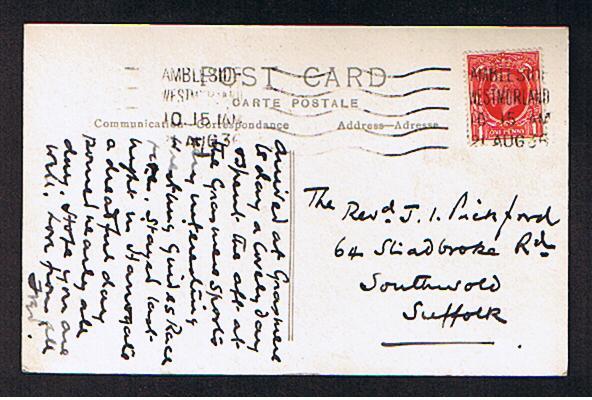 POST CARD
CARTE POSTALE
Communication-Correspondance
Address-Adresse
AMBLESIDE
WESTMORLAND
10.15 AM
21 AUG 36
AMBLESIDE
WESTMORLAND
10.15 AM
21 AUG 36
ONE PENNY
arrived at Grasmere
to day a lovely day
spent the aft at
the Grasmere Sports
very interesting
Wrestling Guides Race
etc. Stayed last
night in Harrogate
a dreadful day
poured nearly all
day. Hope you are
well. Love from all
The Revd. J. I. Pickford
64 Stradbroke Rd
Southwold
Suffolk.